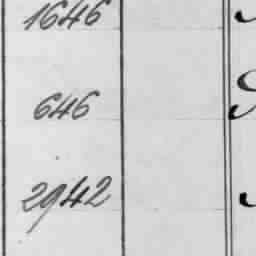 1646
646
2942